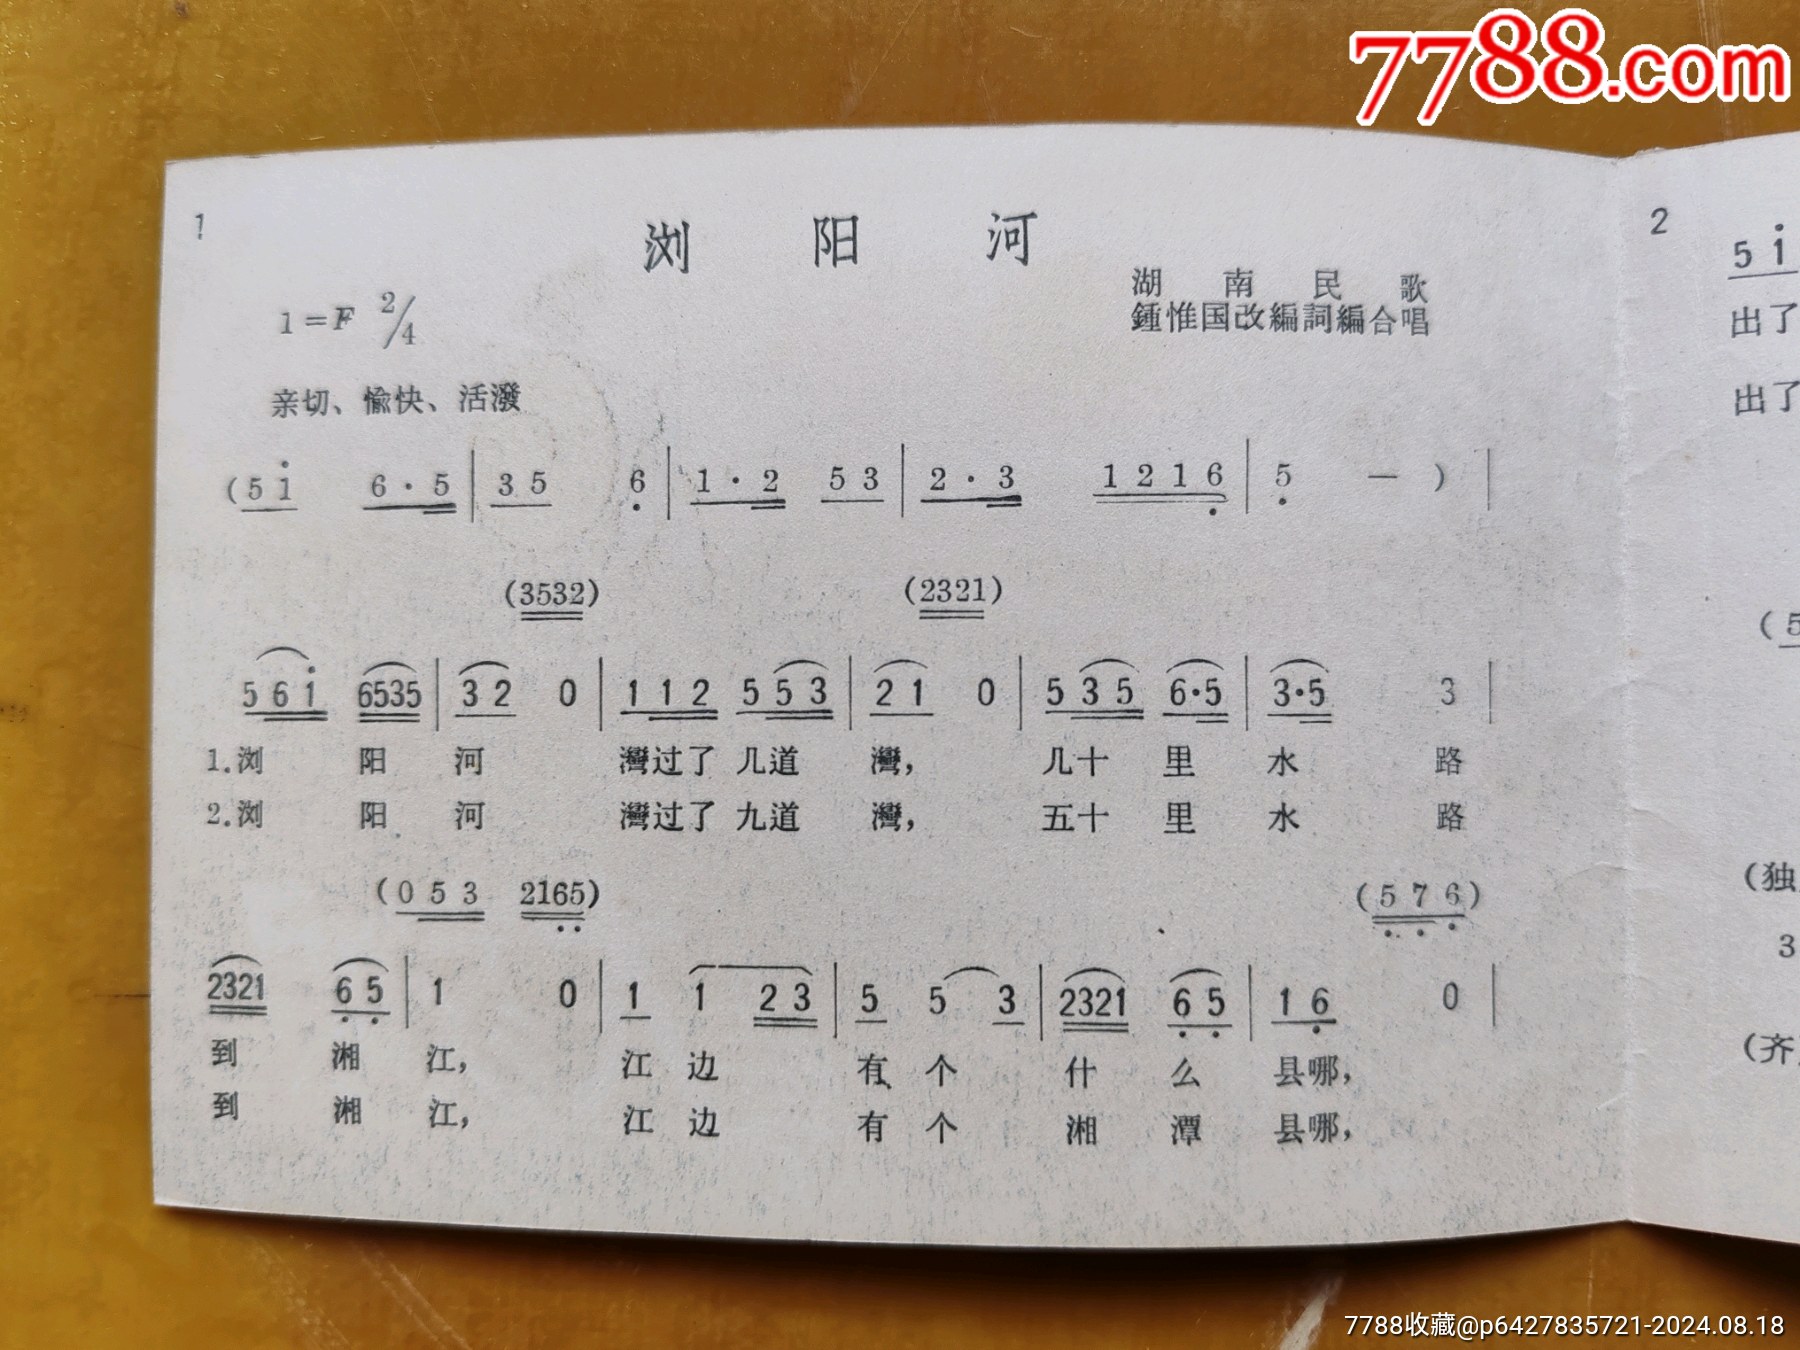 7788.com
1
浏 阳 河
湖 南 民 歌
1=F 2/4
鍾惟国改編詞編合唱
亲切、愉快、活潑
(5 i̇ 6·5 | 3 5 6̣ | 1·2 5 3 | 2·3 1 2 1 6̣ | 5̣ — ) |
(3532) (2321)
5 6 i̇ 6535 | 3 2 0 | 1 1 2 5 5 3 | 2 1 0 | 5 3 5 6·5 | 3·5 3 |
1.浏 阳 河 灣过了 几道 灣, 几十 里 水 路
2.浏 阳 河 灣过了 九道 灣, 五十 里 水 路
(0 5 3 216̣5̣) (5̣ 7̣ 6̣)
2321 6̣ 5̣ | 1 0 | 1 1 2 3 | 5 5 3 | 2321 6̣ 5̣ | 1 6̣ 0 |
到 湘 江, 江 边 有 个 什 么 县哪,
到 湘 江, 江 边 有 个 湘 潭 县哪,
2
5 i̇
出了
出了
(5
(独
3
(齐
7788收藏@p6427835721-2024.08.18